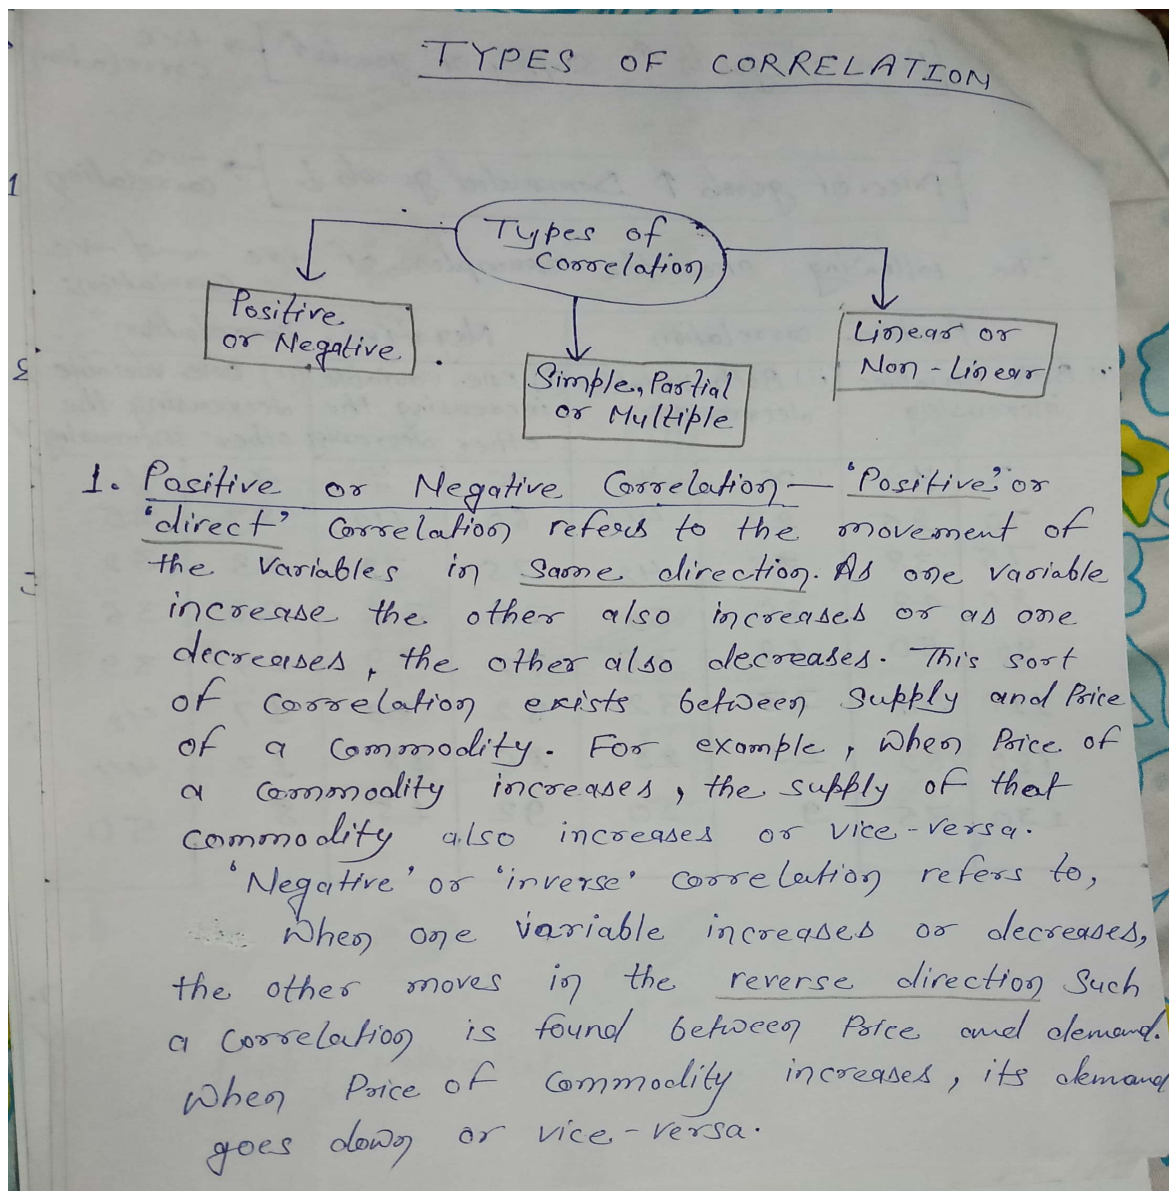 TYPES OF CORRELATION
Types of
Correlation
Positive
or Negative
Simple, Partial
or Multiple
Linear or
Non - Linear
1. Positive or Negative Correlation — 'Positive' or
'direct' Correlation refers to the movement of
the Variables in Same direction. As one variable
increase the other also increases or as one
decreases, the other also decreases. This sort
of correlation exists between Supply and Price
of a Commodity. For example, When Price of
a Commodity increases, the supply of that
Commodity also increases or vice-versa.
'Negative' or 'inverse' correlation refers to,
When one variable increases or decreases,
the other moves in the reverse direction Such
a Correlation is found between Price and demand.
When Price of Commodity increases, its demand
goes down or vice-versa.